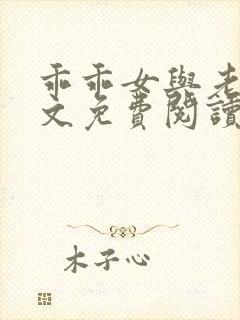 乖乖女與老
文免費閱讀
木子心